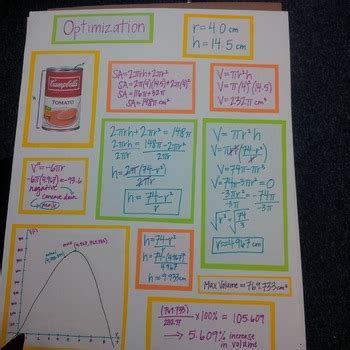 Optimization
r=4.0 cm
h=14.5 cm
Campbell's
TOMATO
SA=2πrh+2πr²
SA=2π(4)(14.5)+2π(4)²
SA=116π+32π
SA=148π cm²
V=πr²h
V=π(4)²(14.5)
V=232π cm³
2πrh+2πr²=148π
2πrh=148π-2πr²
h=2π(74-r²)
2πr
h=74-r²
r
V=πr²h
V=πr²(74-r²)
r
V=74πr-πr³
V'=74π-3πr²=0
-3πr²=-74π
-3π -3π
√r²=√74
3
r=4.967cm
V"=-6πr
-6π(4.967)=-93.6
negative
concave down
max
h=74-r²
r
h=74-(4.967)²
4.967
h=9.933cm
Max Volume=769.733cm³
(769.733)
232π
x100%=105.609
→ 5.609% increase
in volume